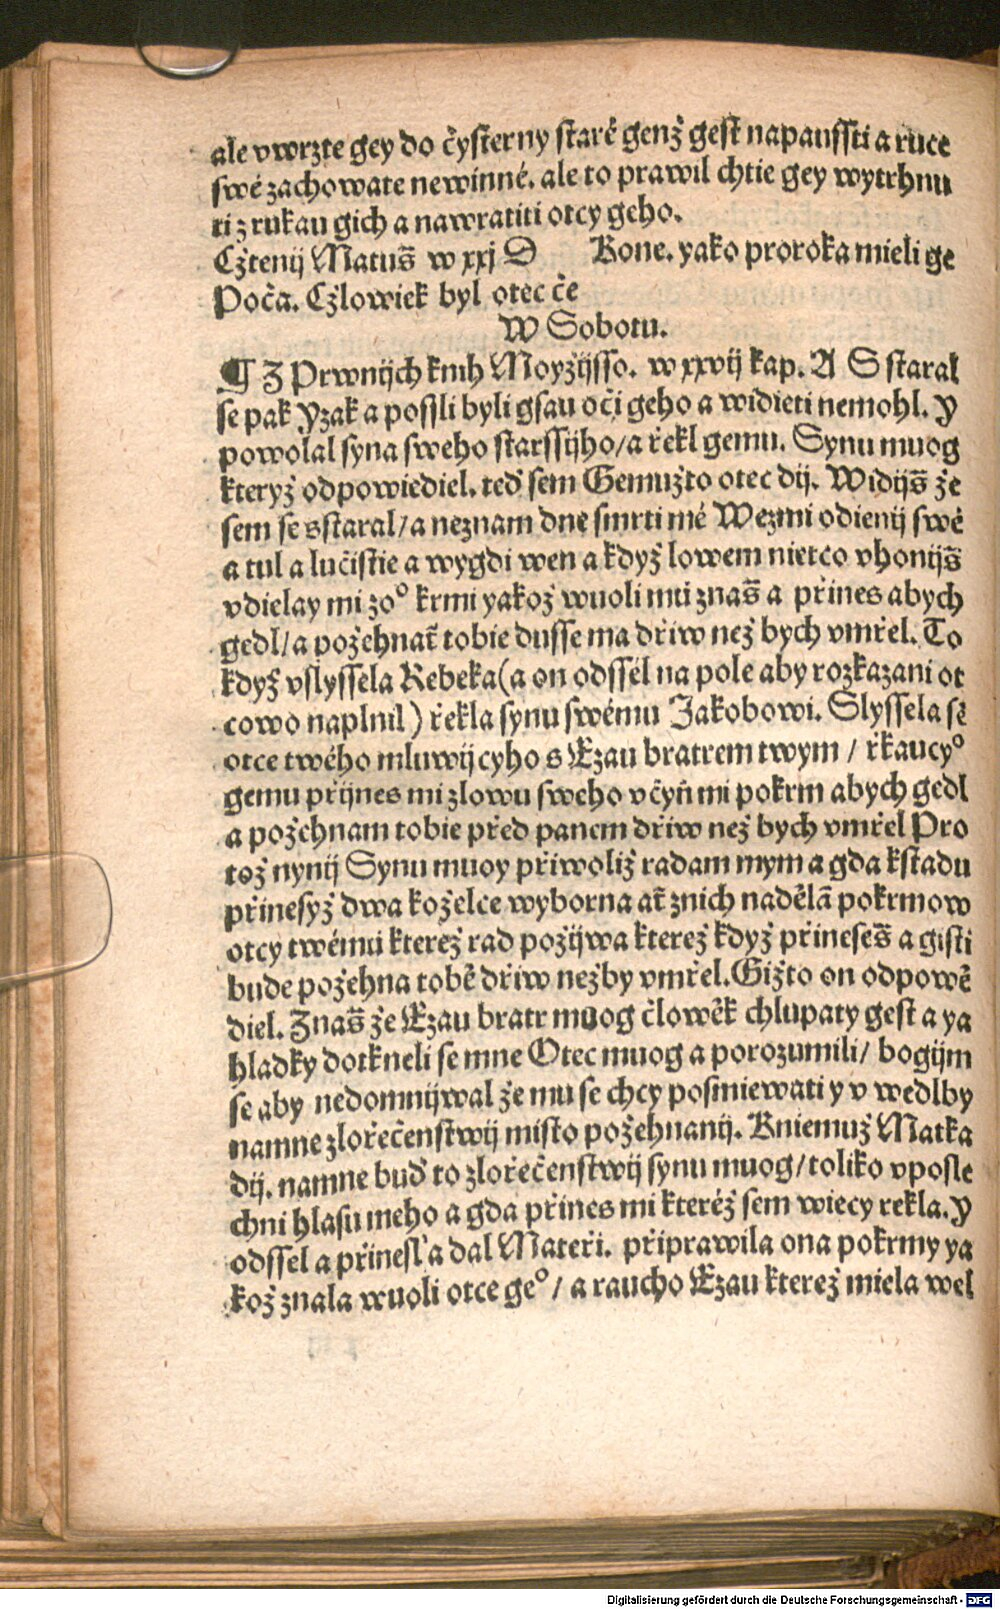 ale vwrzte gey do čysterny staré genž gest napaussti a ruce
swé zachowate newinné. ale to prawil chtie gey wytrhnu
ti z rukau gich a nawratiti otcy geho.
Cžtenij Matuš w xxj D Kone. yako proroka mieli ge
Poča. Cžlowiek byl otec če
W Sobotu.
¶ Z Prwnijch knih Moyžijsso. w xxvij kap. A S staral
se pak Yzak a posslli byli gsau oči geho a widieti nemohl. Y
powolal syna sweho starssijho/a řekl gemu. Synu muog
kteryž odpowiediel. teď sem Gemužto otec dij. Widijš že
sem se sstaral/a neznam dne smrti mé Wezmi odienij swé
a tul a lučistie a wygdi wen a když lowem nietco vhonijš
vdielay mi zo° krmi yakož wuoli mú znaš a přines abych
gedl/a požehnat̃ tobie dusse ma dřiw než bych vmřel. To
když vslyssela Rebeka(a on odssél na pole aby rozkazani ot
cowo naplnil) řekla synu swému Jakobowi. Slyssela sẽ
otce twého mluwijcyho s Ezau bratrem twym / řkaucy°
gemu přijnes mi zlowu sweho včyň mi pokrm abych gedl
a požehnam tobie před panem dřiw než bych vmřel Pro
tož nynij Synu muoy přiwoliž radam mym a gda kstadu
přinesyž dwa koželce wyborna at̃ znich nadělã pokrmow
otcy twému kterež rad požijwa kterež když přineseš a gisti
bude požehna tobě dřiw nežby vmřel. Gižto on odpowě
diel. Znaš že Ezau bratr muog člowěk chlupaty gest a ya
hladky dotkneli se mne Otec muog a porozumili/ bogijm
se aby nedomnijwal že mu se chcy posmiewati y v wedlby
namne zlořečenstwij misto požehnanij. Kniemuž Matka
dij. namne buď to zlořečenstwij synu muog/toliko vposle
chni hlasu meho a gda přines mi kteréž sem wiecy rekla. Y
odssel a přinesl a dal Mateři. připrawila ona pokrmy ya
kož znala wuoli otce ge° / a raucho Ezau kterež miela wel
Digitalisierung gefördert durch die Deutsche Forschungsgemeinschaft - DFG